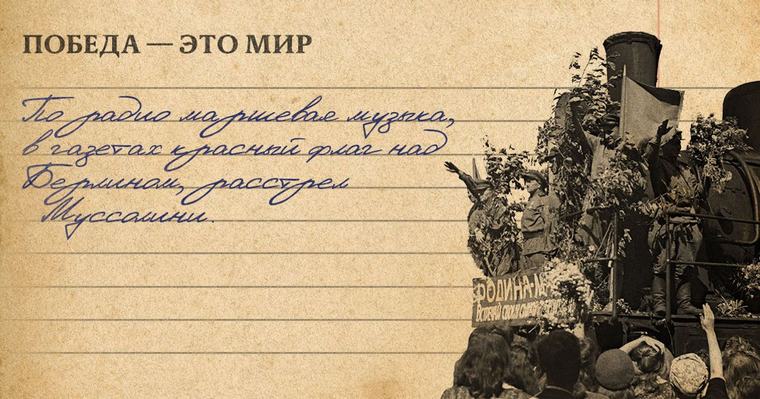 ПОБЕДА — ЭТО МИР
По радио маршевая музыка,
в газетах красный флаг над
Берлином, расстрел
Муссолини.
РОДИНА-МА
Встречай своих